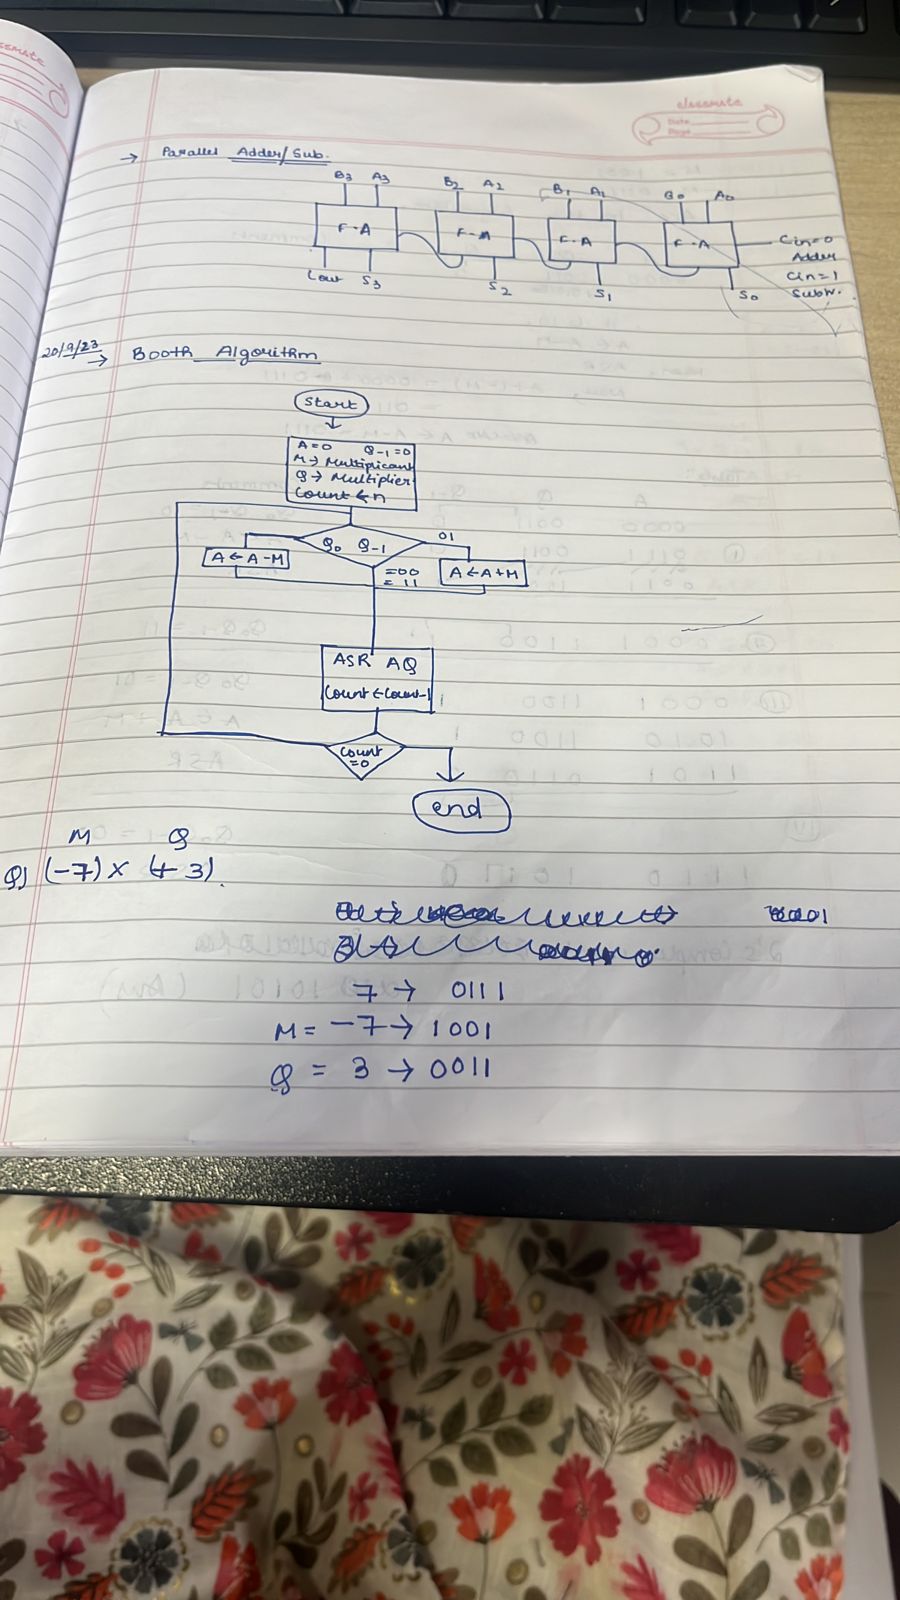 classmate
Date
Page
→ Parallel Adder/Sub.
B3 A3 B2 A2 B1 A1 B0 A0
F-A F-A F-A F-A
Cin=0
Adder
Cin=1
Cout S3 S2 S1 S0
20/9/23
→ Booth Algorithm
Start
A=0 Q-1=0
M→ Multiplicant
Q→ Multiplier
Count ← n
Q0 Q-1
01
A ← A-M
=00
= 11
A ← A+M
ASR AQ
Count ← Count-1
Count
=0
end
M Q
Q) (-7) × (+ 3).
7 → 0111
M = -7 → 1001
Q = 3 → 0011